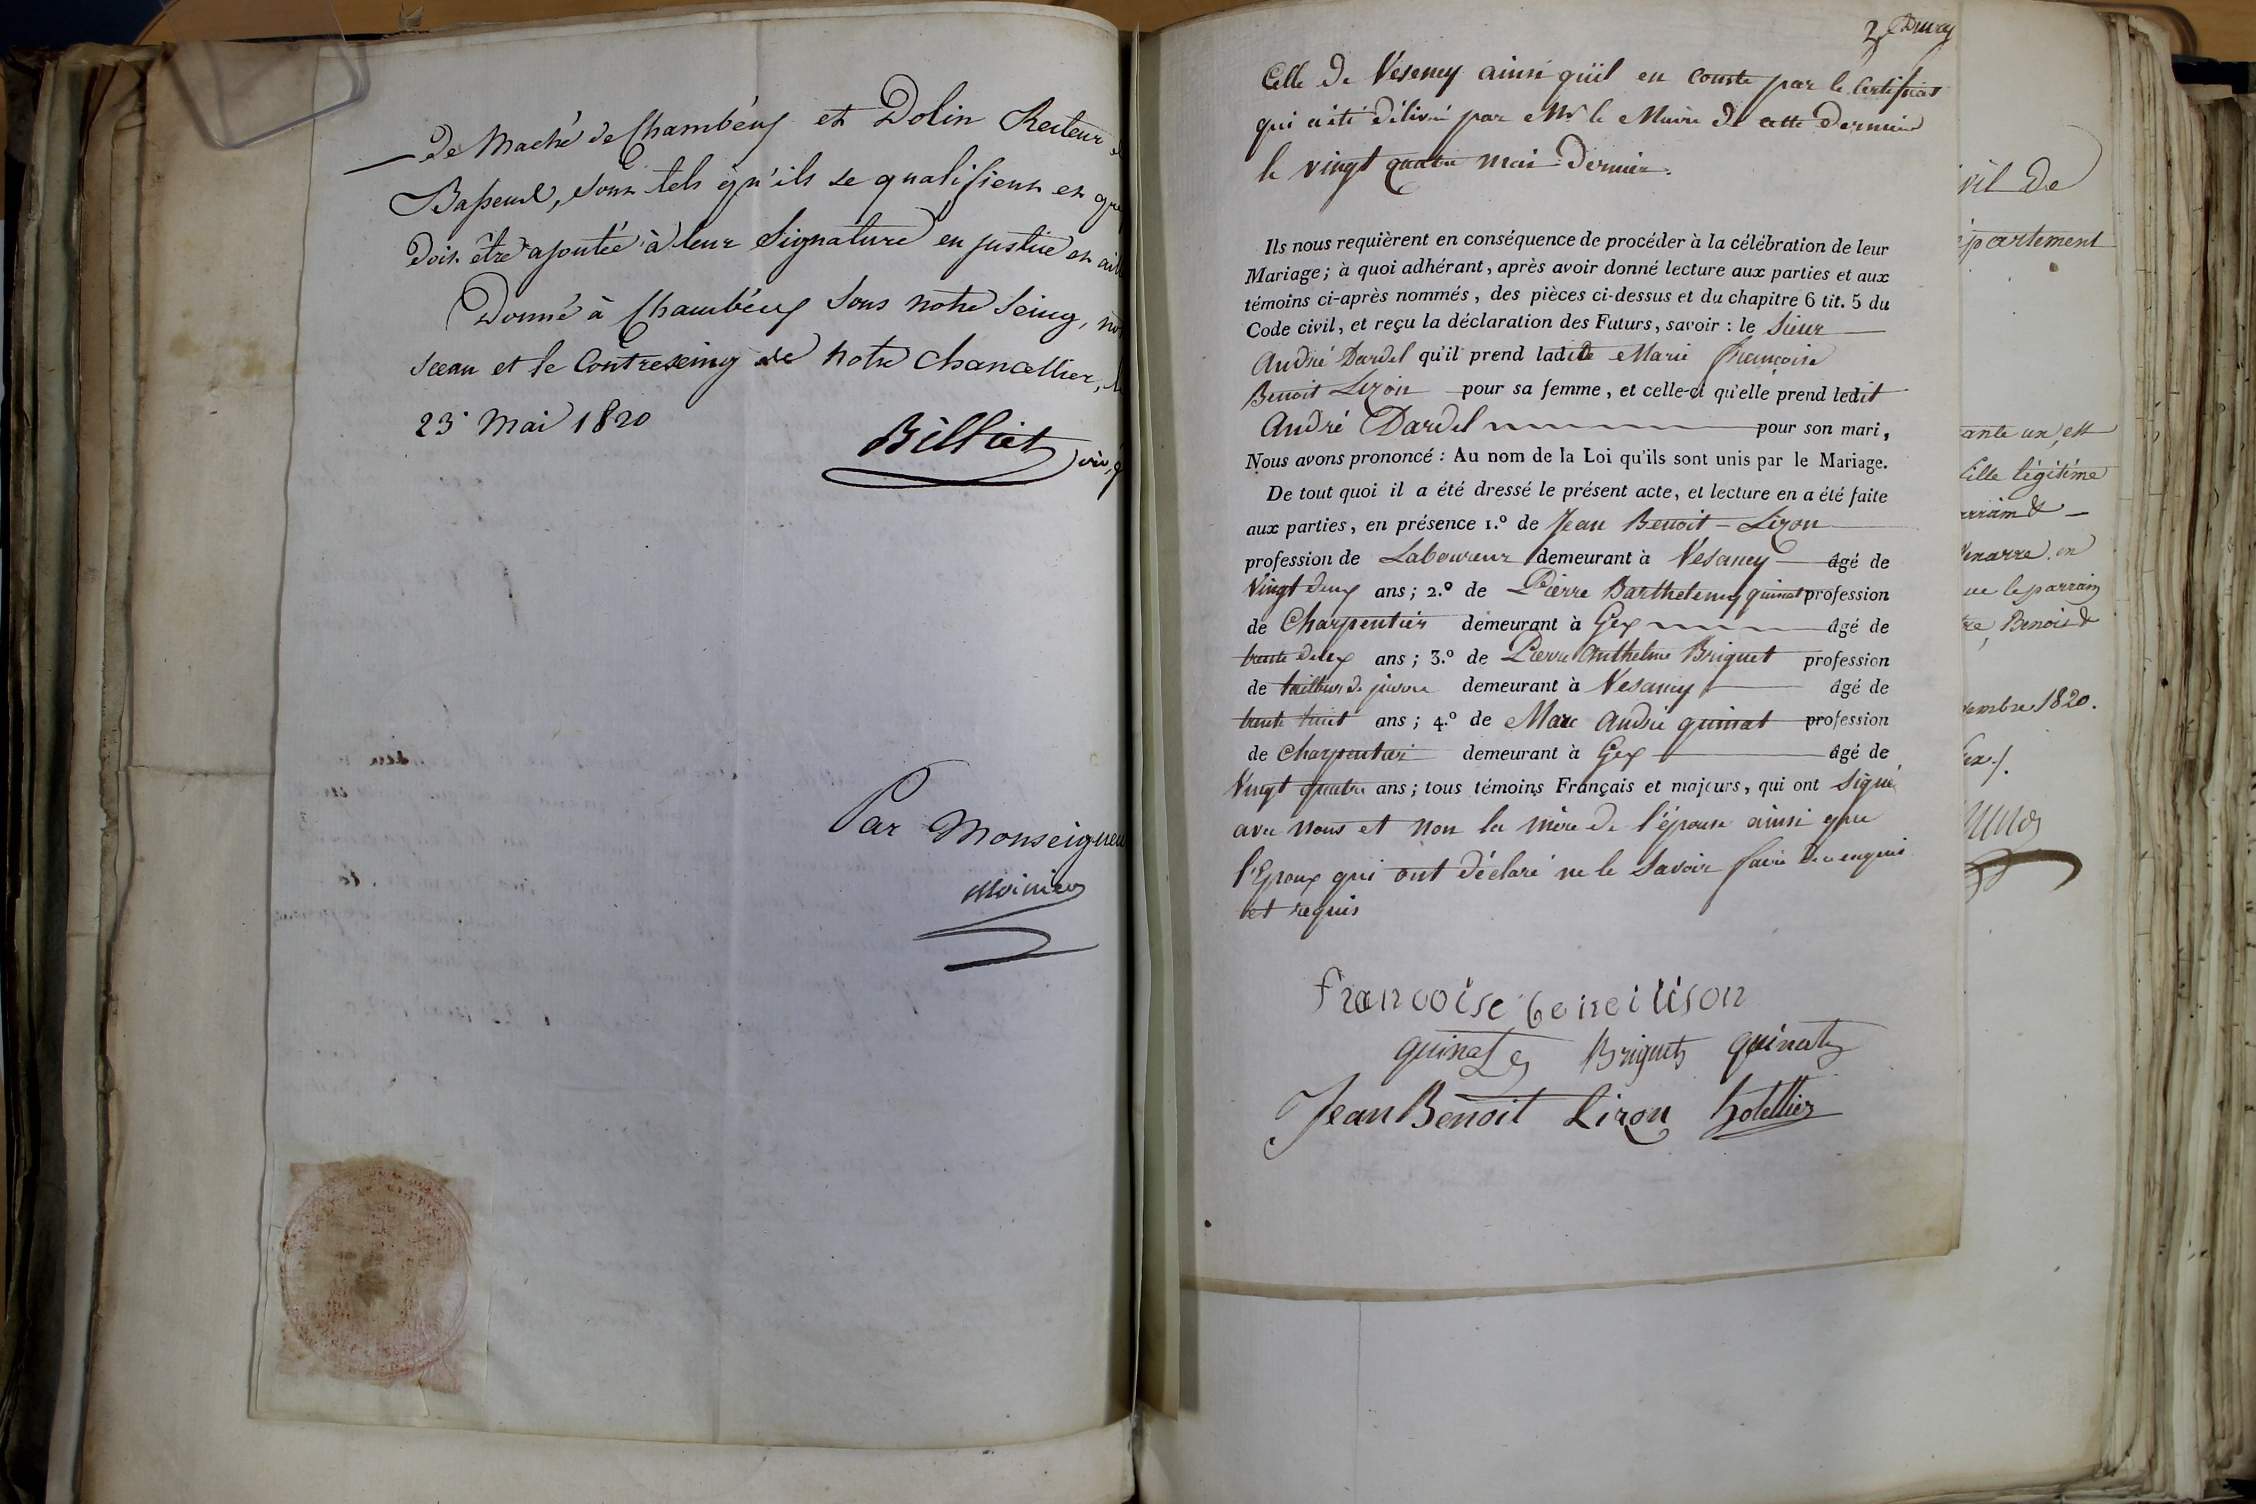 de Maché de Chambéry et Dolin Recteur
Basseul, sont tels qu'ils se qualifient et
doit être ajoutée à leur Signature en justice et
Donné à Chambéry sous notre Seing,
Sceau et le Contreseing de notre Chancellier,
23 Mai 1820
Billiet
Par Monseigneu
2
Celle de Vésency ainsi qu'il en conste par le Certificat
qui a été délivré par Mr le Maire de cette dernière
le vingt quatre mai dernier.
Ils nous requièrent en conséquence de procéder à la célébration de leur
Mariage; à quoi adhérant, après avoir donné lecture aux parties et aux
témoins ci-après nommés, des pièces ci-dessus et du chapitre 6 tit. 5 du
Code civil, et reçu la déclaration des Futurs, savoir : le Sieur
André Dardel qu'il prend ladite Marie Françoise
Benoit Lizon pour sa femme, et celle-ci qu'elle prend ledit
André Dardel pour son mari,
Nous avons prononcé : Au nom de la Loi qu'ils sont unis par le Mariage.
De tout quoi il a été dressé le présent acte, et lecture en a été faite
aux parties, en présence 1.º de Jean Benoit-Lizon
profession de Laboureur demeurant à Vésancy âgé de
Vingt deux ans; 2.º de Pierre Barthelemy quinat profession
de Charpentier demeurant à Gex âgé de
trente deux ans; 3.º de Pierre Anthelme Briquet profession
de tailleur de pierre demeurant à Vesancy âgé de
trente huit ans; 4.º de Marc André quinat profession
de Charpentier demeurant à Gex âgé de
Vingt quatre ans; tous témoins Français et majeurs, qui ont signé
avec nous et non la mère de l'épouse ainsi que
l'Epoux qui ont déclaré ne le Savoir faire de ce enquis
et requis
francoise benoitlison
quinat Briquet quinat
Jean Benoit Lizon hotellier
ivil de
épartement
ante un, est
fille légitime
arrain &
enarre en
ue le parrain
Benoit &
embre 1820.